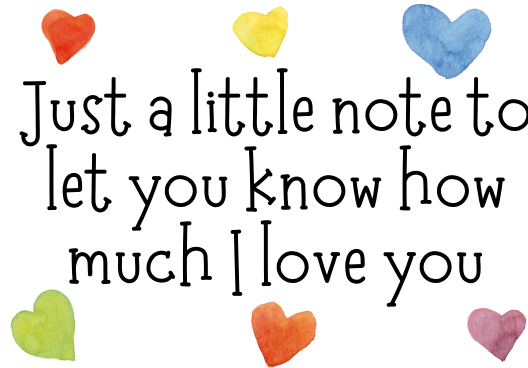 Just a little note to
let you know how
much I love you